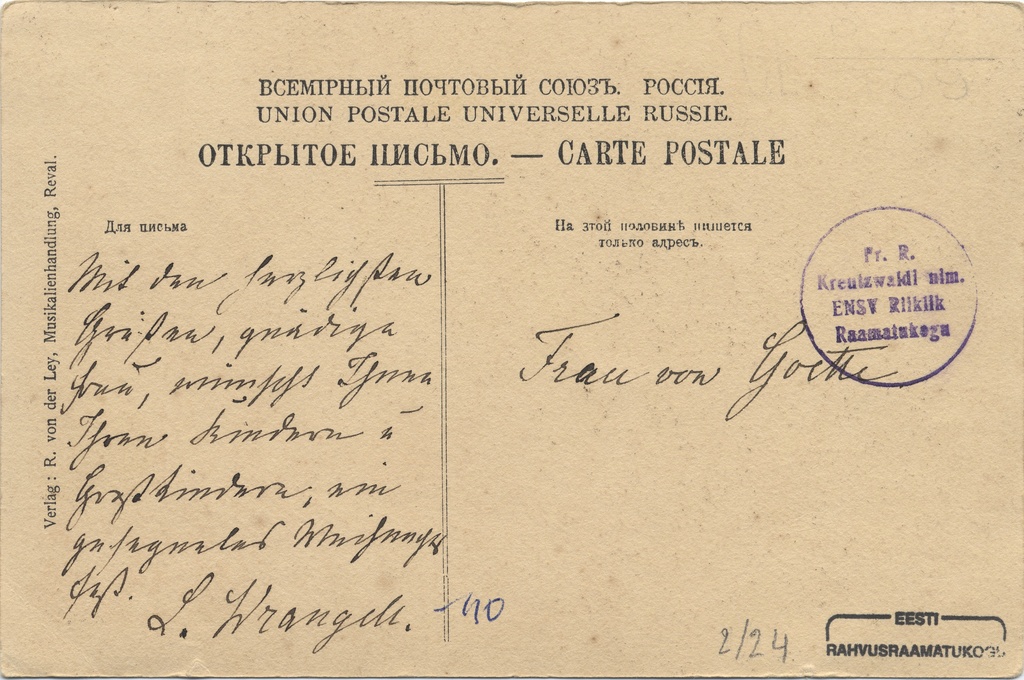 ВСЕМІРНЫЙ ПОЧТОВЫЙ СОЮЗЪ. РОССІЯ.
UNION POSTALE UNIVERSELLE RUSSIE.
ОТКРЫТОЕ ПИСЬМО. — CARTE POSTALE
Verlag: R. von der Ley, Musikalienhandlung, Reval.
Для письма
Mit den herzlichsten
Grüßen, gnädige
Frau, wünscht Ihnen
Ihren Kindern u
Großkindern, ein
gesegnetes Weihnachts
fest.
L. Wrangell.
На этой половинѣ пишется
только адресъ.
Frau von Goette
Fr. R.
Kreutzwaldi nim.
ENSV Riiklik
Raamatukogu
-40
2/24
EESTI
RAHVUSRAAMATUKOGU